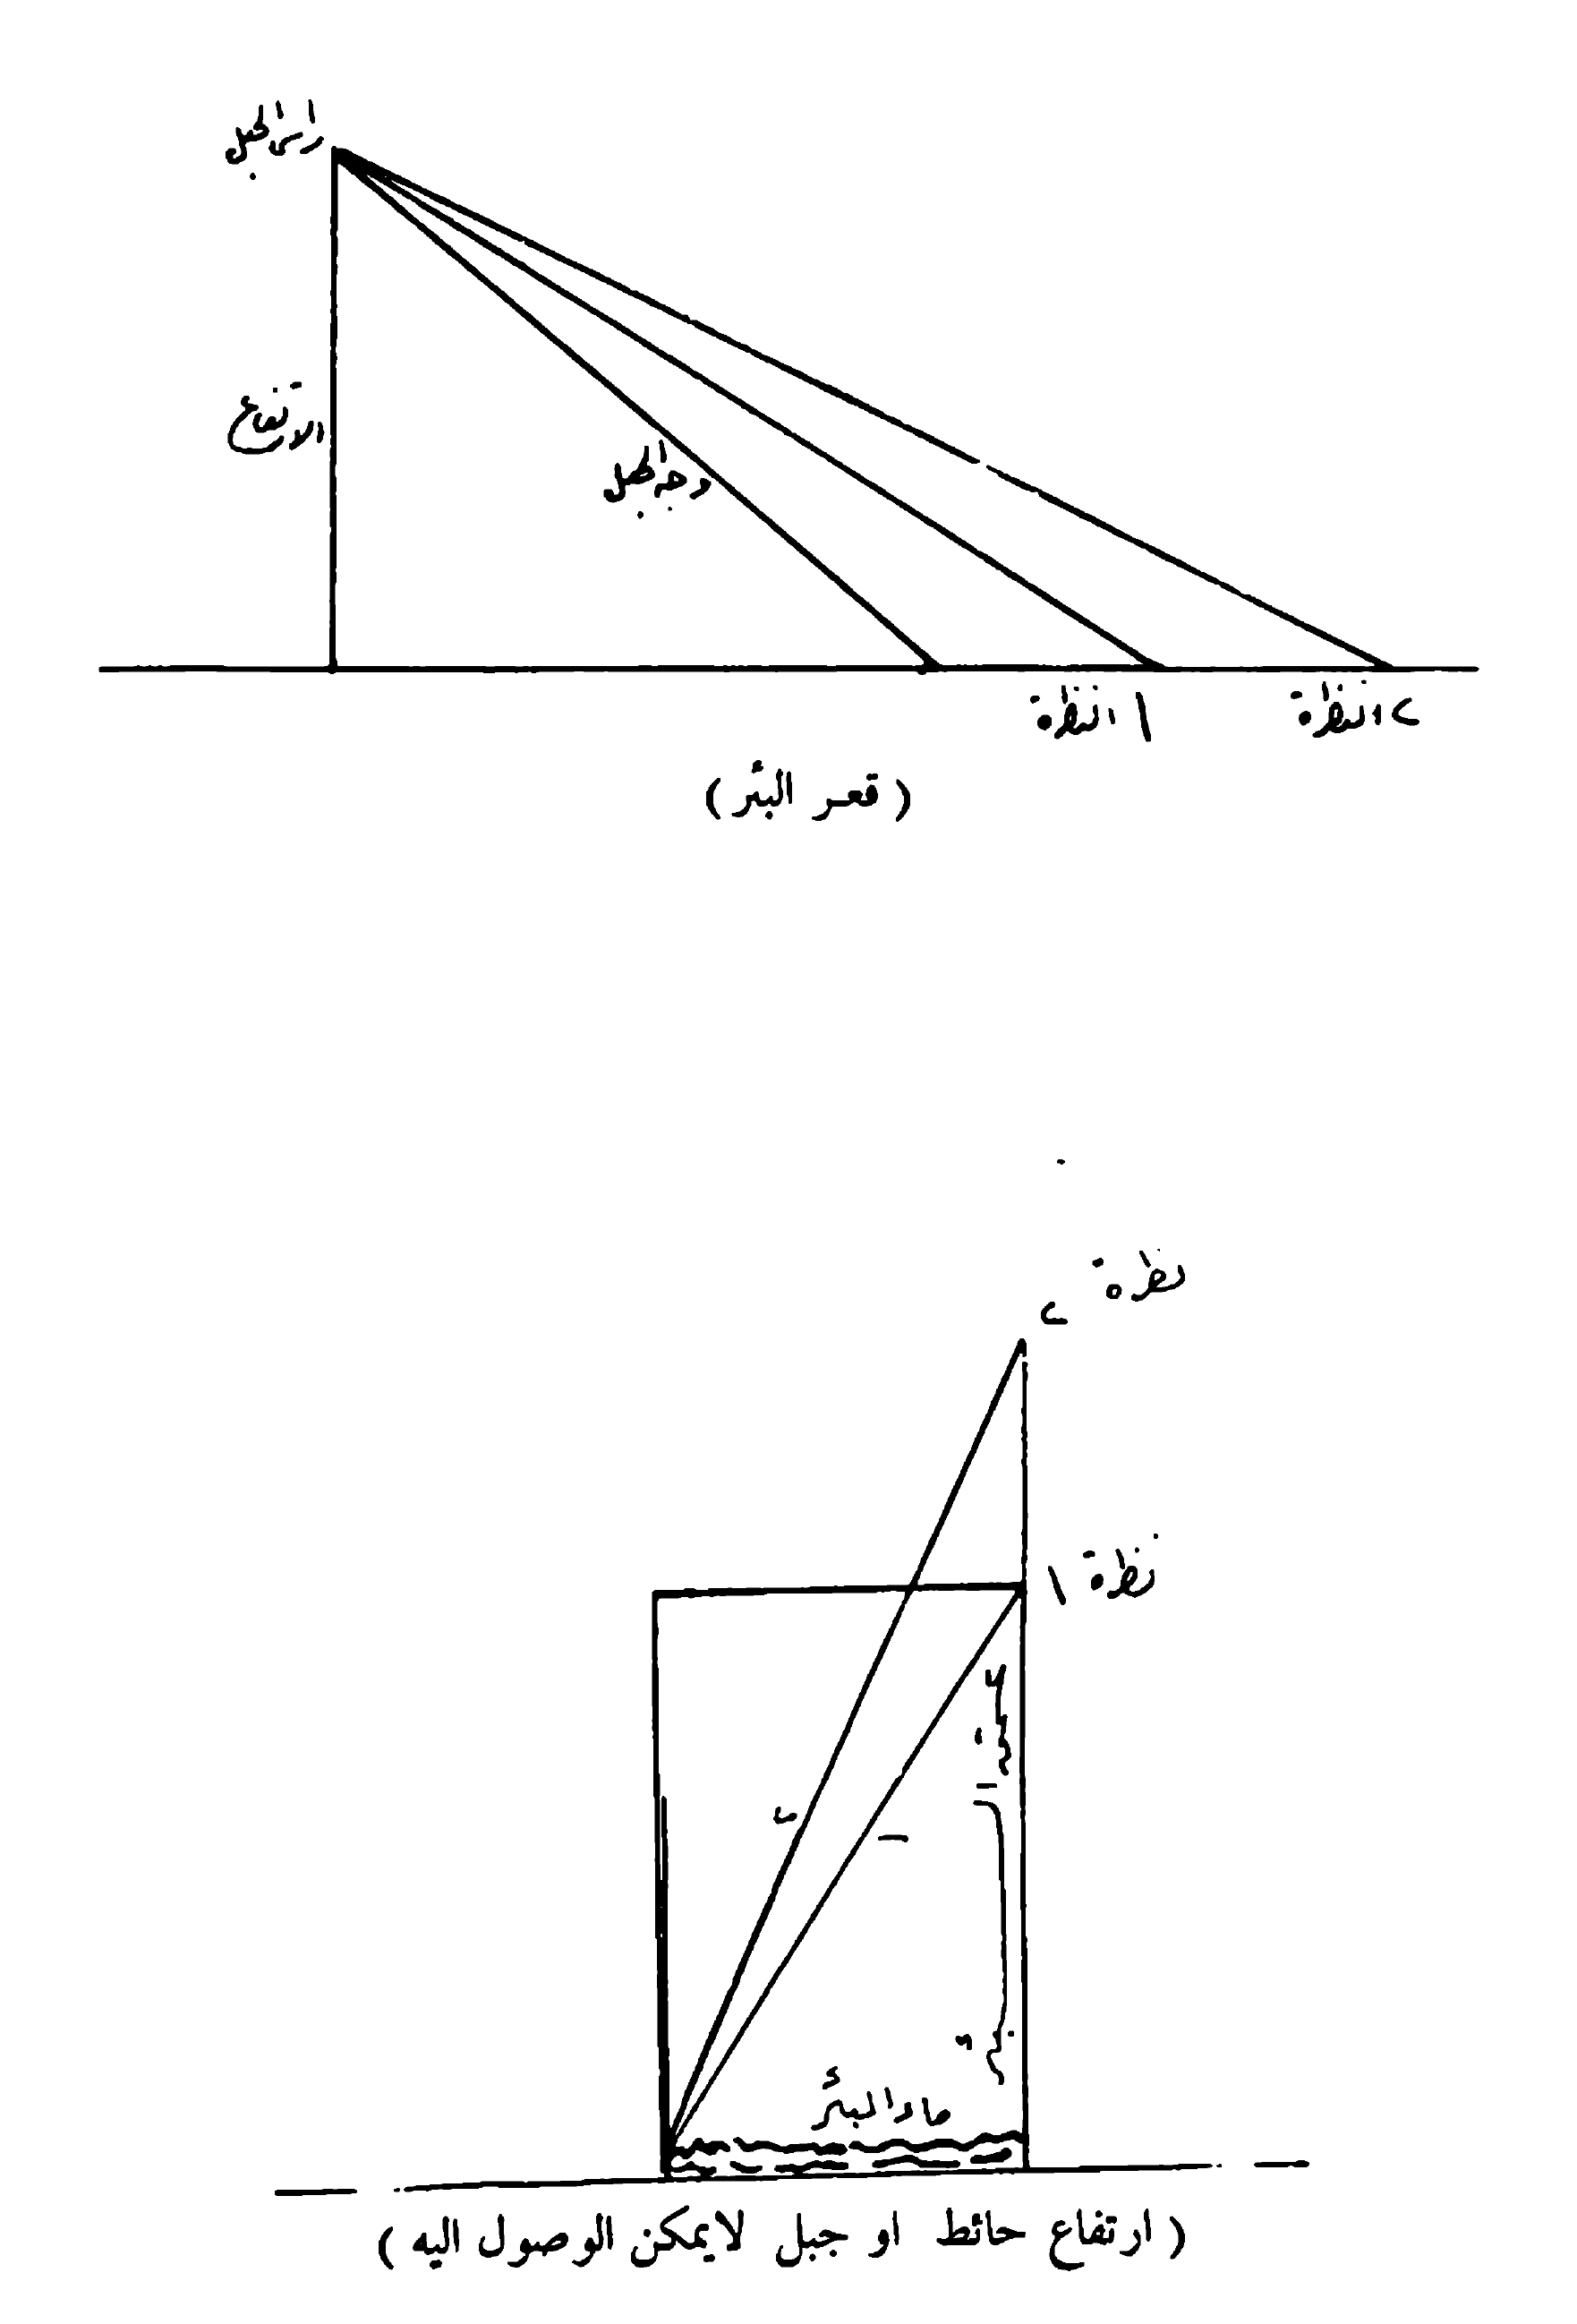 راس الجبل
الارتفاع
وجه الجبل
١ النظرة
٢ النظرة
( قعر البئر )
نظرة ٢
نظرة ١
ماء البئر
( ارتفاع حائط او جبل لايمكن الوصول اليه )